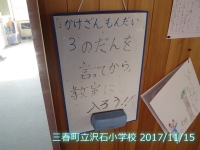 かけざんもんだい
3のだんを
言ってから
教室に
入ろう!!
三春町立沢石小学校 2017/11/15